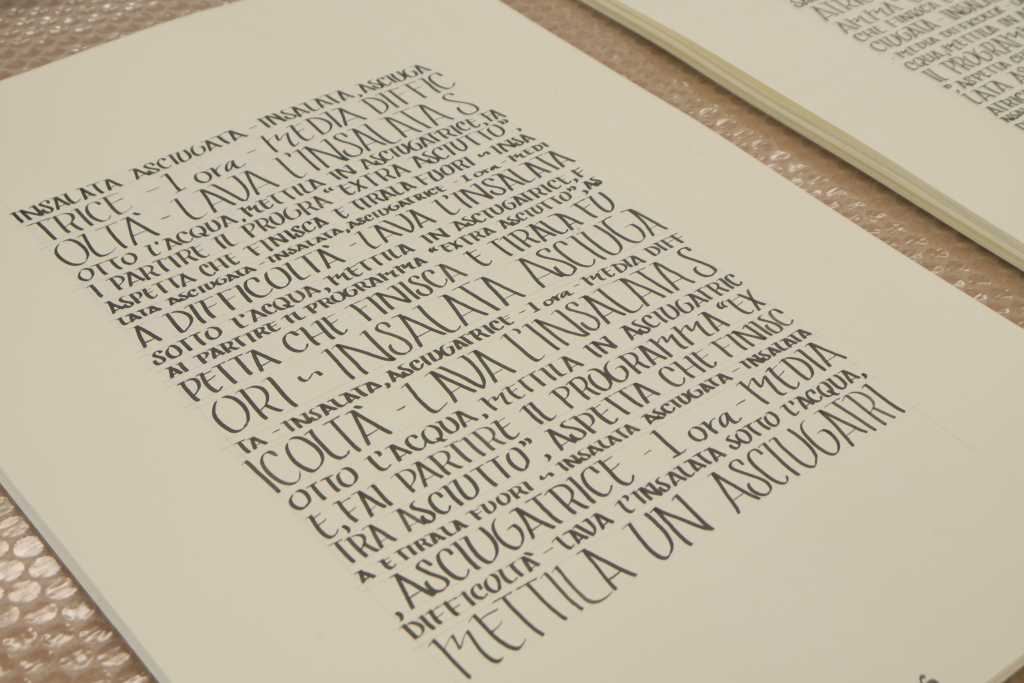 INSALATA ASCIUGATA - INSALATA, ASCIUGA
TRICE - 1 ora - MEDIA DIFFIC
OLTÀ - LAVA L'INSALATA S
OTTO L'ACQUA, METTILA IN ASCIUGATRICE, FA
I PARTIRE IL PROGRA "EXTRA ASCIUTTO",
ASPETTA CHE FINISCA E TIRALA FUORI ~ INSA
LATA ASCIUGATA - INSALATA, ASCIUGATRICE - 1 ora - MEDI
A DIFFICOLTÀ - LAVA L'INSALATA
SOTTO L'ACQUA, METTILA IN ASCIUGATRICE, F
AI PARTIRE IL PROGRAMMA "EXTRA ASCIUTTO", AS
PETTA CHE FINISCA E TIRALA FU
ORI ~ INSALATA ASCIUGA
TA - INSALATA, ASCIUGATRICE - 1 ora - MEDIA DIFF
ICOLTÀ - LAVA L'INSALATA S
OTTO L'ACQUA, METTILA IN ASCIUGATRIC
E, FAI PARTIRE IL PROGRAMMA "EX
TRA ASCIUTTO", ASPETTA CHE FINISC
A E TIRALA FUORI ~ INSALATA ASCIUGATA - INSALATA
, ASCIUGATRICE - 1 ora - MEDIA
DIFFICOLTÀ - LAVA L'INSALATA SOTTO L'ACQUA,
METTILA UN ASCIUGATRI
ATRIC
AMMA
CHE FINISCA
CIUGATA - INSALA
MEDIA DIFFICOLTÀ
CQUA, METTILA IN A
IL PROGRAMM
", ASPETTA CH
LATA AS
ATRIC